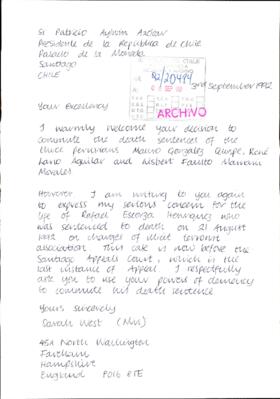 Sr Patricio Aylwin Azócar
Presidente de la Republica de Chile
Palacio de la Moneda
Santiago
CHILE
92/20484
3rd September 1992
ARCHIVO
Your Excellency
I warmly welcome your decision to
commute the death sentences of the
three Peruvians Mario González Quispe, René
Lano Aguilar and Nisbert Fausto Mamani
Morales.
However I am writing to you again
to express my serious concern for the
life of Rafael Escorza Henriquez who
was sentenced to death on 21 August
1992 on charges of illicit terrorist
association. This case is now before the
Santiago Appeals Court, which is the
last instance of Appeal. I respectfully
ask you to use your power of clemency
to commute his death sentence.
Yours sincerely
Sarah West (Mrs)
45A North Wallington
Fareham
Hampshire
England PO16 8TE